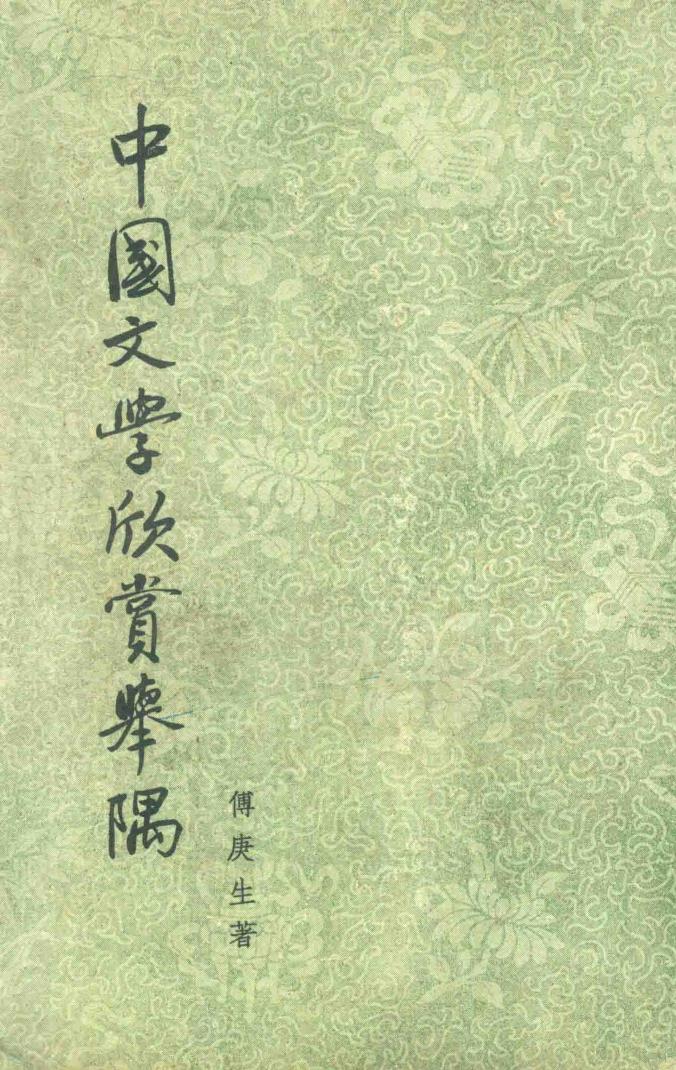 中國文學欣賞舉隅
傅庚生著